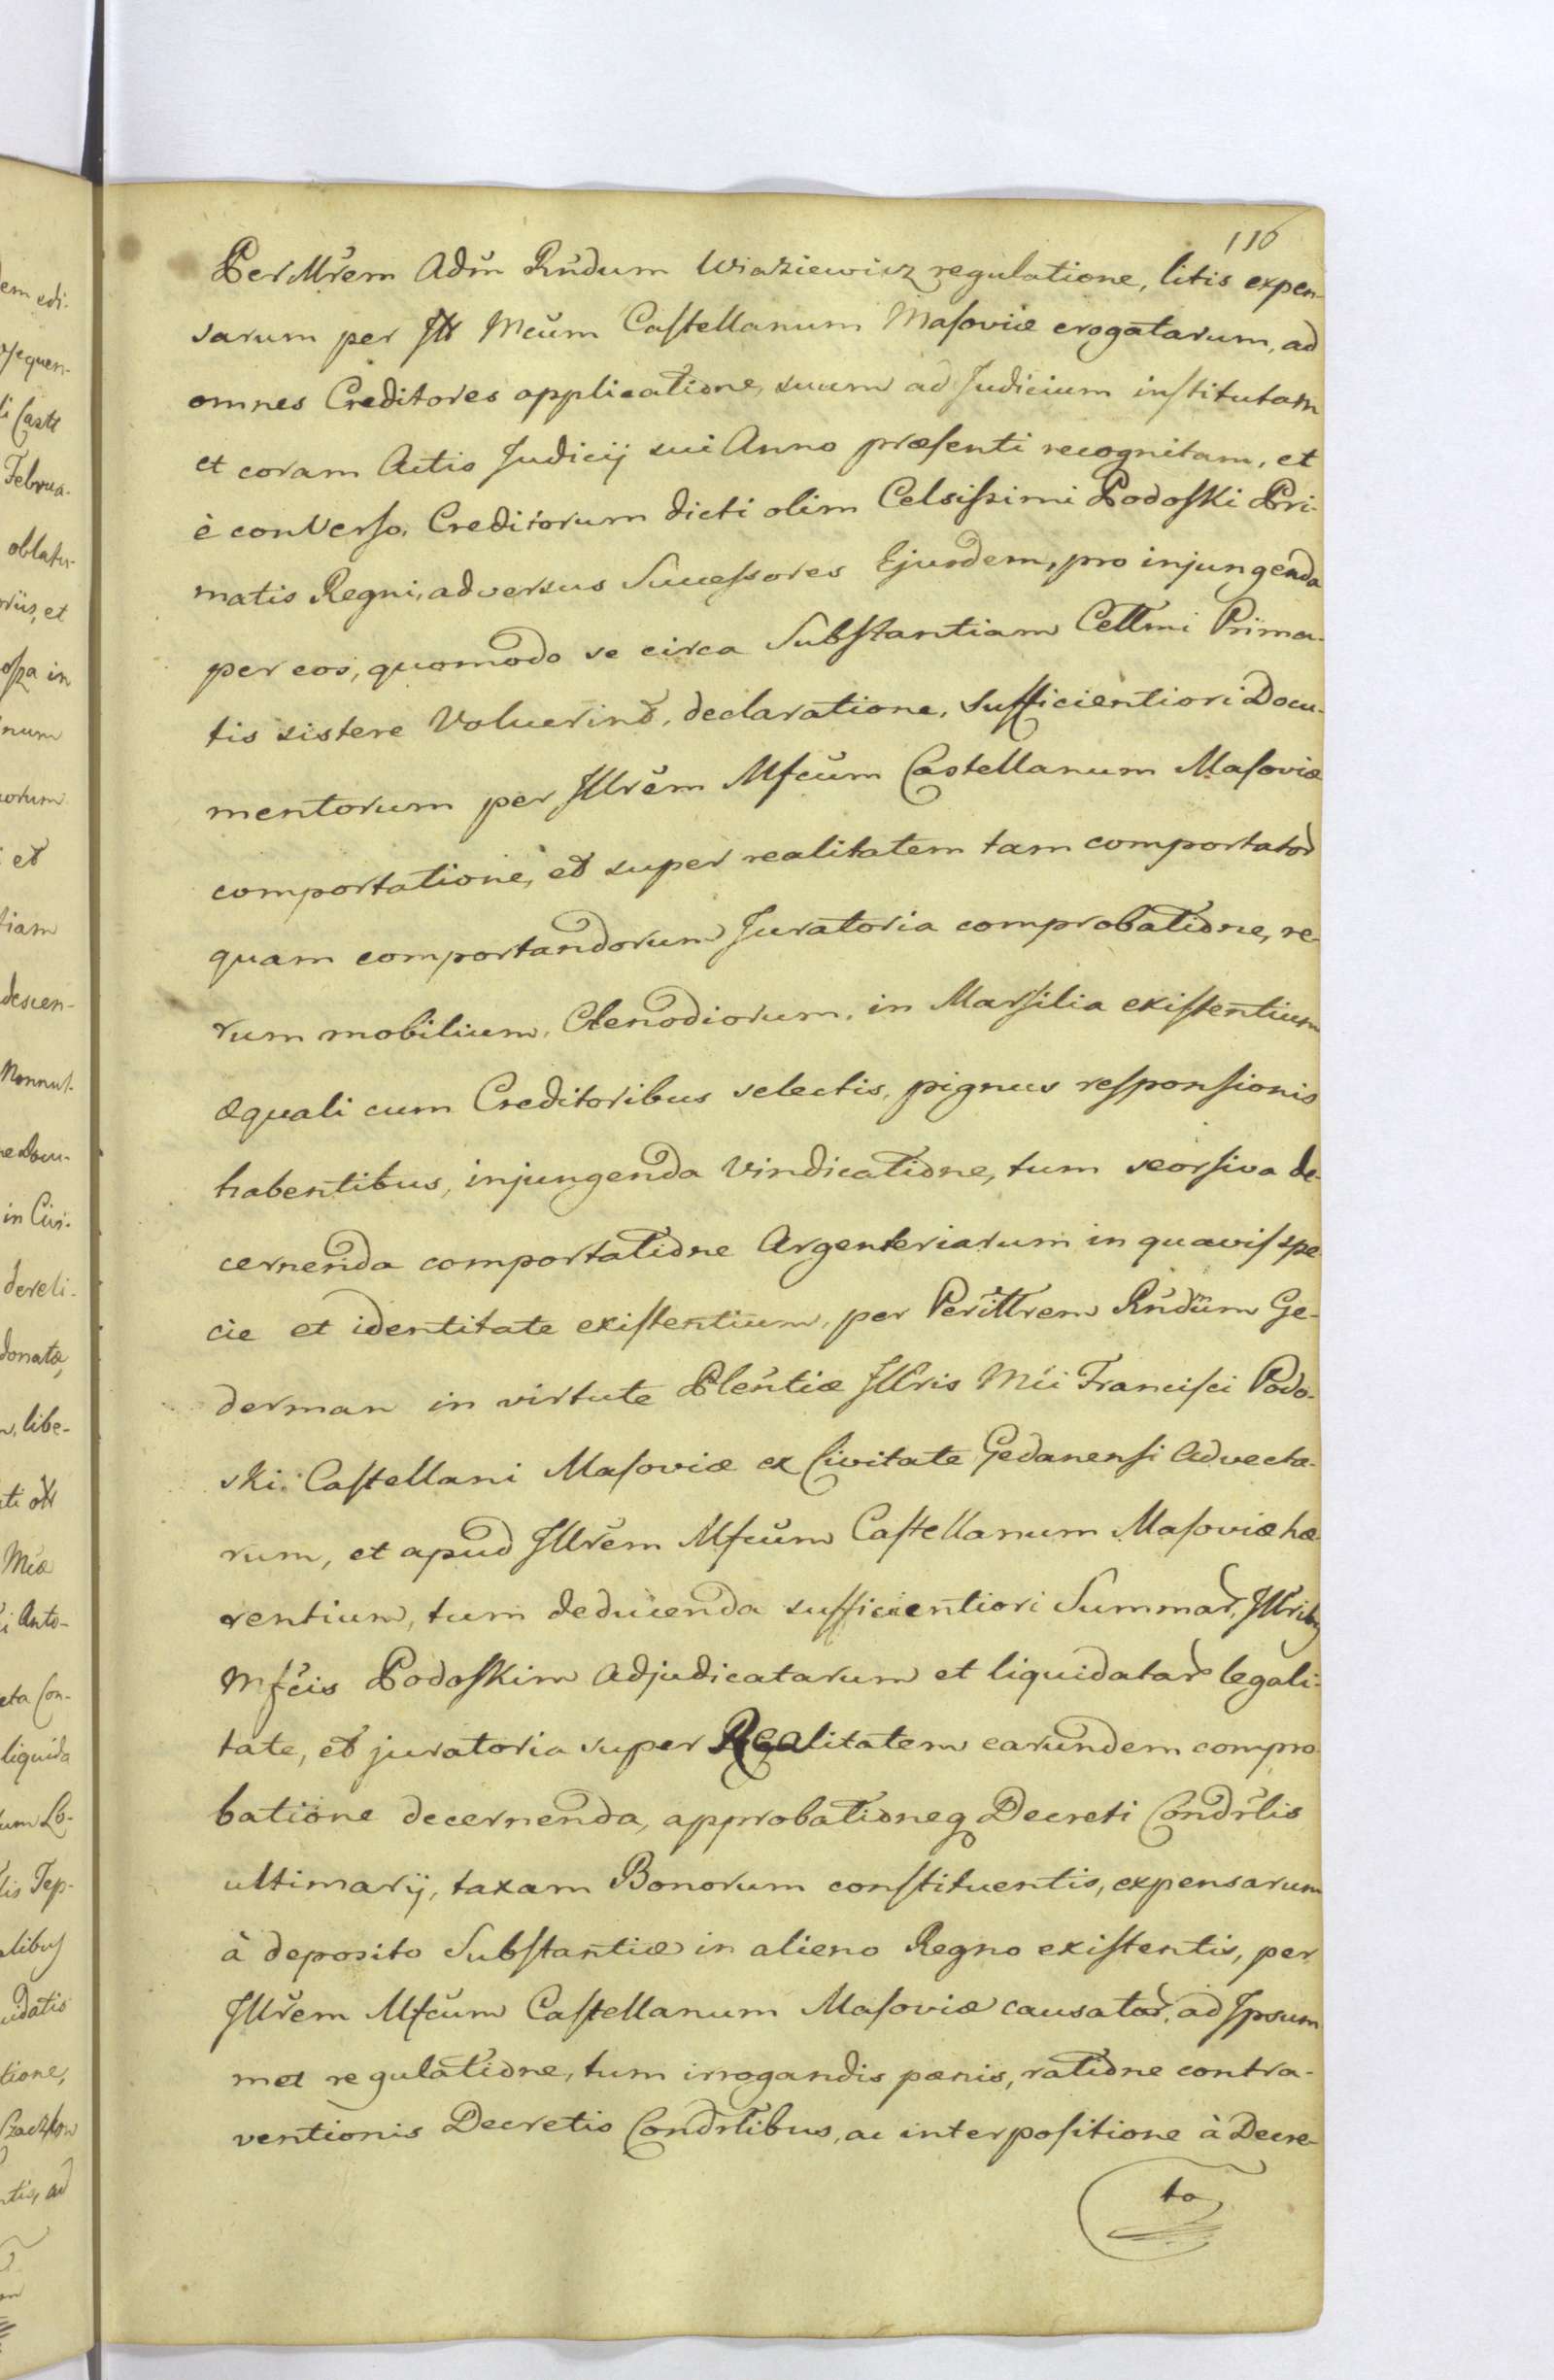 116
PerIllrem Adm Rndum Wiaziewicz regulatione, litis expen-
sarum per Ill Mcum Castellanum Masoviæ erogatarum, ad
omnes Creditores applicatione, suum ad Judicium institutam
et coram Actis Judicij sui Anno præsenti recognitam, et
è conVerso, Creditorum dicti olim Celsissimi Podoski Pri-
matis Regni, adversus Sucessores Ejusdem, pro injungenda
per eos, quomodo se circa Substantiam Cellmi Prima-
tis sistere Voluerint, declaratione, Sufficientiori Docu-
mentorum per Illrem Mfcum Castellanum Masoviæ
comportatione, et super realitatem tam comportator
quam comportandorum Juratoria comprobatione, re-
rum mobilium, Clenodiorum, in Marsilia existentium
æquali cum Creditoribus selectis, pignus responsionis
habentibus, injungenda Vindicatione, tum seorsiva de-
cernenda comportatione Argenteriarum in quavis spe
cie et identitate existentium, per Perillrem Rndum Ge-
derman in virtute Plentiæ Illris Mci Francisci Podo-
ski Castellani Masoviæ ex Civitate Gedanensi Advecta-
rum, et apud Illrem Mfcum Castellanum Masoviæ hæ
rentium, tum deducenda sufficientiori Summar, Illribus
Mfcis Podoskim Adjudicatarum et liquidatar legali-
tate, et juratoria super Realitatem earundem compro
batione decernenda, approbationeq Decreti Condrlis
ultimarij, taxam Bonorum constituentis, expensarum
à deposito Substantiæ in alieno Regno existentis, per
Illrem Mfcum Castellanum Masoviæ causatar, ad Ipsum
met regulatione, tum irrogandis pænis, ratione contra-
ventionis Decretis Condrlibus, ac interpositione à Decre-
to